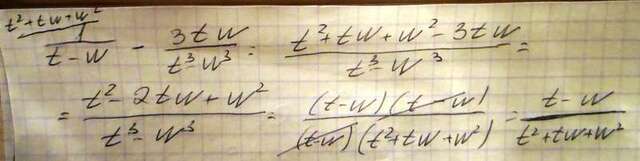 t²+tw+w²
1/(t-w) - 3tw/(t³-w³) = (t²+tw+w²-3tw)/(t³-w³) =
= (t²-2tw+w²)/(t³-w³) = (t-w)(t-w)/((t-w)(t²+tw+w²)) = (t-w)/(t²+tw+w²)